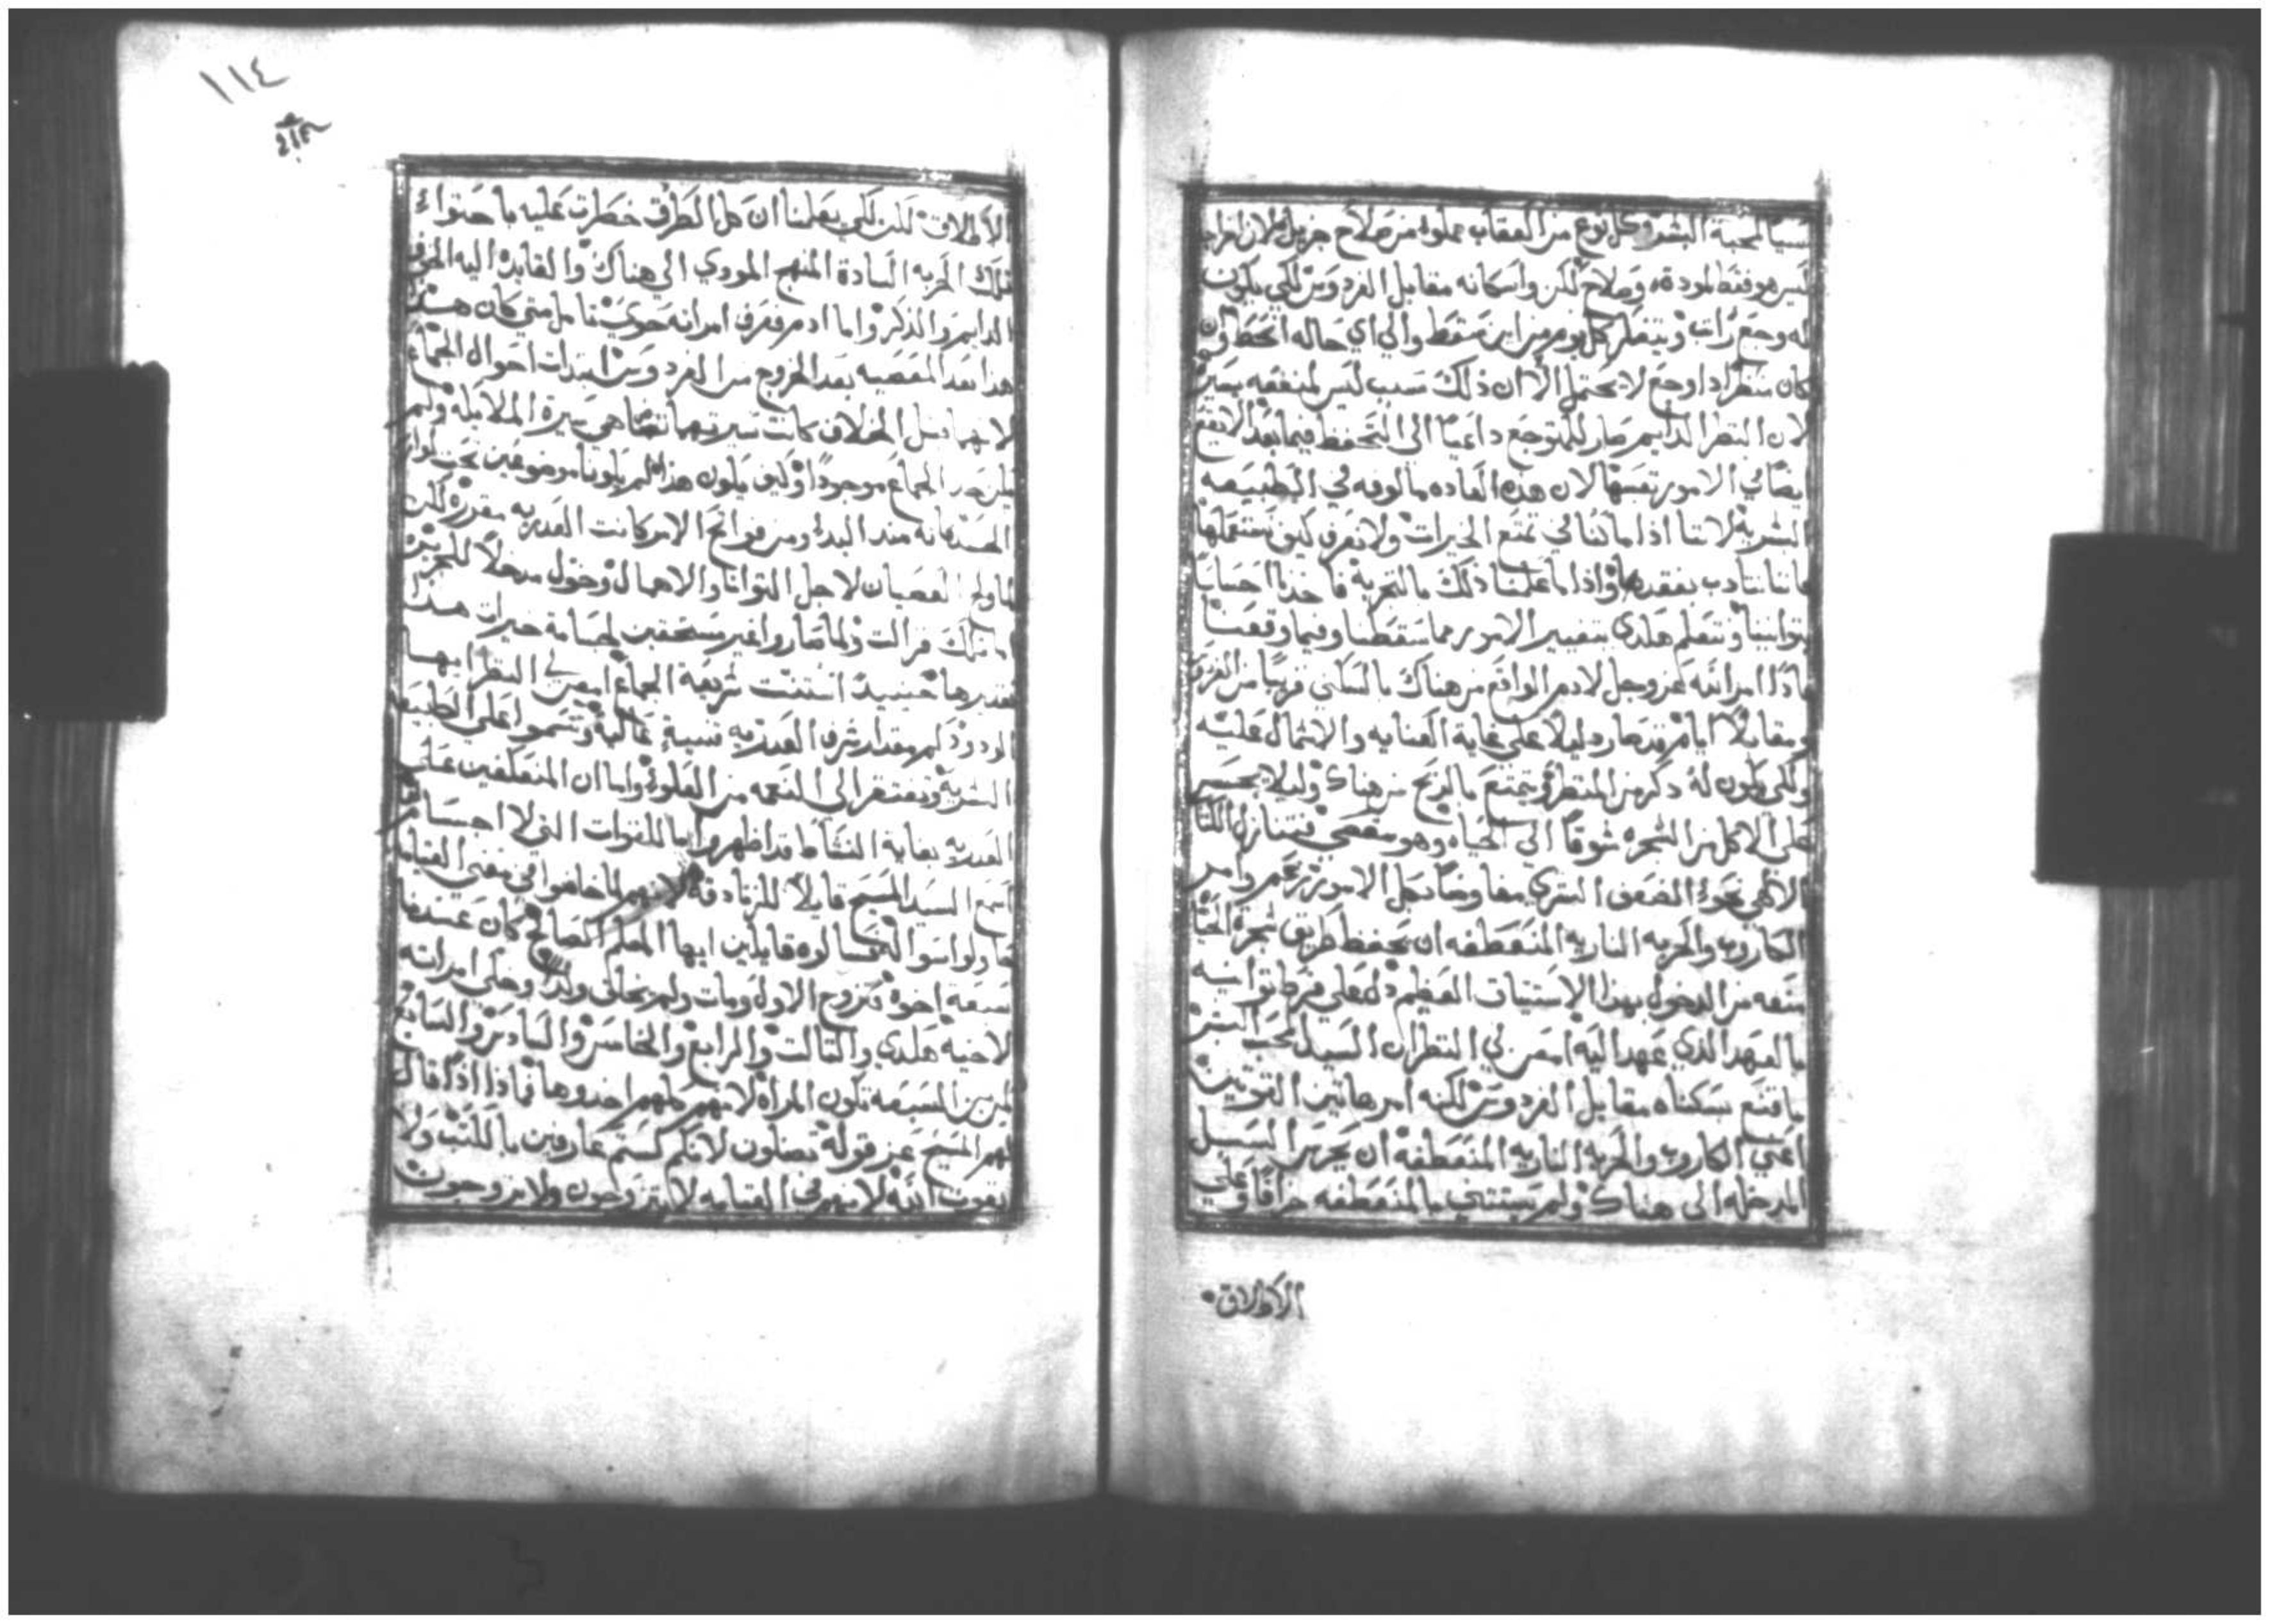 سببًا لمحبة البشر وكل نوع من العقاب مملوه من صلاح جزيل لان اخراجه
ليس هو فقط لموده وصلاح لكن واسكانه مقابل الفردوس لكي يكون
له وجع راتب ويتفكر كل يوم من اين سقط والي اي حاله انحط وان
كان منظر اداوجع لا يحتمل الا ان ذلك سبب ليس لمنفعه يسيره
لان النظر الدايم صار للمتوجع داعيًا الى التحفظ فيما بعد لا يقع
ايضًا في الامور نفسها لان هذه العاده مالوفه في الطبيعه
البشريه لاننا اذا ما كنا في تمتع الخيرات ولا نعرف كيف نستعملها
فاننا نتادب بفقدها واذا ما علمنا ذلك بالتجربة فاخذنا احساسًا
بتوانينا ونتعلم هكدي بتغيير الامور مما سقطنا وفيما وقعنا
فاذًا امر الله عز وجل لادم الواقع من هناك بالسكني قريبًا من الفردوس
ومقابلًا اياه قد صار دليلًا على غاية العنايه والاشمال عليه
ولكي يكون له دكر من المنظر ويتمتع بالربح من هناك وليلا يجسر
على الاكل من الشجره شوقًا الى الحياه وهو مقصي فتنازل الكتاب
الالاهي نحو الضعف البشري مفاوضًا بكل الامور نزعم وامر
الكاروب والحربه الناريه المنعطفه ان تحفظ طريق شجرة الحياه
منعه من الدخول بهذا الاستيثاق العظيم دل على فرط توانيه
بالعهد الذي عهد اليه امعن في النظر ان السيد محب البشر
ما قنع بسكناه مقابل الفردوس لكنه امر هاتين القوتين
اعني الكاروب والحربه الناريه المنعطفه ان تحرس السبيل
المدخله الى هناك ولم يستتني بالمنعطفه جزافًا وعلي
الاطلاق
١١٤
الاطلاق لكن لكي يعلمنا ان كل الطرق خطرت عليه باحتواء
تلك الحربه السادة المنهج المودي الي هناك والقايده اليه الخوف
الدايم والذكر واما ادم فعرف امراته حوي تامل متي كان هذا
هذا بعد المعصيه بعد الخروج من الفردوس ابتدات احوال الجماع
لانهما قبل الخلاف كانت سيرتهما تضاهي سيرة الملايكه ولم
يكن خبر الجماع موجودًا وكيف يكون هذا لم يكونا موضوعين تحت لوازم
الجسد فانه منذ البدء ومن فواتح الامر كانت العدريه مقرره لكن
لما ولج العصيان لاجل التوانا والاهمال وخول مدخلًا للخطية
اما تلك فزالت ولما صاروا غير مستحقين لجسامة خيرات هذا
قدرها حينيدٍ استنت شريعة الجماع امعن في النظر ايها
الودود كم مقدار شرف العدريه نسبة عاليه وتسموا على الطبيعه
البشريه وتفتقر الى النعمه من العلو واما ان المتعلقين على
العدريه بغاية النشاط قد اظهروا للقوات التي لا اجسام لها
اسمع السيد المسيح قايلًا للزنادقه لانهم لما خاضوا في معنى القيامه
حاولوا سوالهم فسالوه قايلين ايها المعلم الصالح كان عندنا
سبعة اخوه فتزوج الاول ومات ولم يخلف ولدًا وخلى امراته
لاخيه هكدي والتالت والرابع والخامس والسادس والسابع
لمن من السبعه تكون المراه لانهم كلهم اخدوها فماذا اذًا قال
لهم المسيح عز قوله تضلون لانكم لستم عارفين بالكتب ولا
بقوت الله لانهم في القيامه لا يتزوجون ولا يزوجون